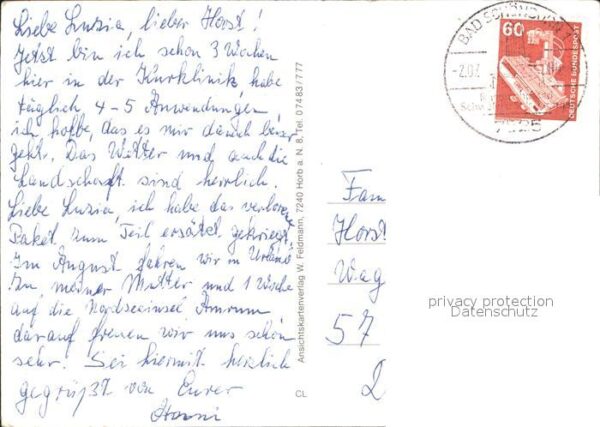 Liebe Luzia, lieber Horst!
Jetzt bin ich schon 3 Wochen
hier in der Kurklinik, habe
täglich 4-5 Anwendungen,
ich hoffe, das es mir danach besser
geht. Das Wetter und auch die
Landschaft sind herrlich.
Liebe Luzia, ich habe das verlorene
Paket zum Teil ersätzt gekriegt.
Im August fahren wir in Urlaub
zu meiner Mutter und 1 Woche
auf die Nordseeinsel Amrum
darauf freuen wir uns schon
sehr. Sei hiermit herzlich
gegrüßt von Eurer
Ansichtskartenverlag W. Feldmann, 7240 Horb a. N. 8, Tel. 07483/777
CL
60
DEUTSCHE BUNDESPOST
BAD
Fam
Horst
Wag
57
privacy protection
Datenschutz